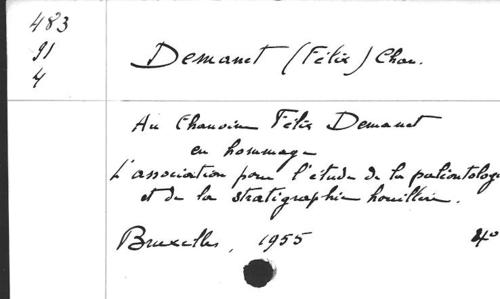 483
91
4
Demanet (Félix) Chan.
Au Chanoine Félix Demanet
en hommage
L'association pour l'étude de la paléontologie
et de la stratigraphie houillère.
Bruxelles, 1955 4°